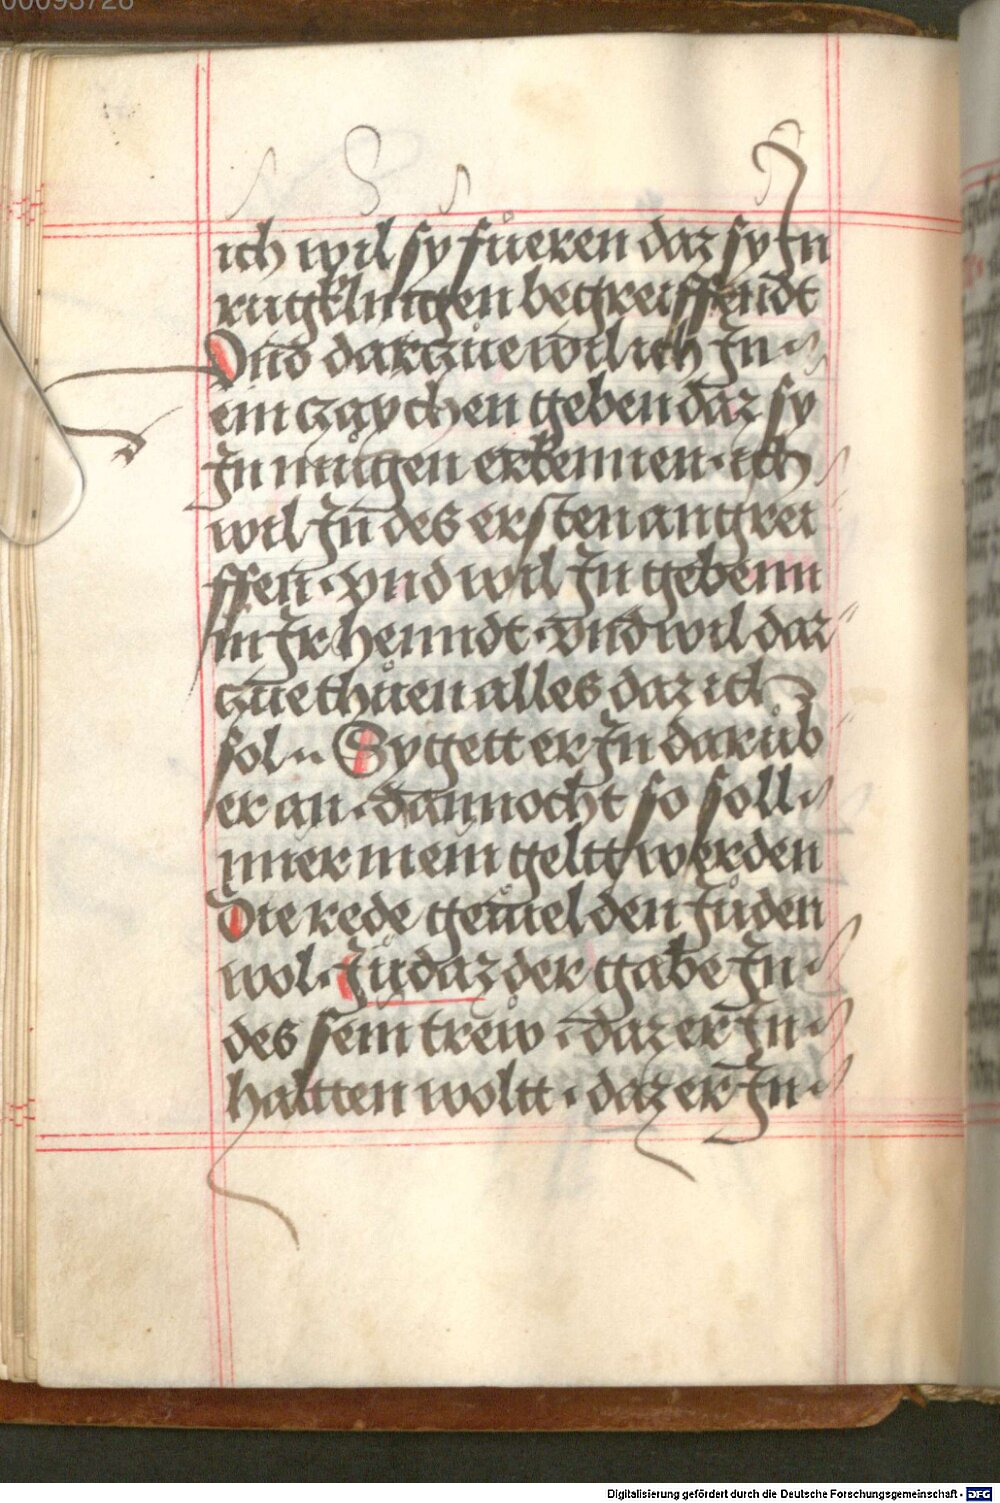 00093728
ich wil sy fůeren daz sy In
rugklingen begreiffendt
Vnd darczůe wil ich In
ein czaychen geben daz sy
In můgen erkennen · ich
wil In des ersten angrei
ffen · vnd wil In gebenn
in Ir henndt · vnd wil daz
czůe thůen alles daz ich
sol · Sy gett er In darüb
er an · dannocht so soll
mier mein geltt werden
Die rede geůiel den Juden
wol · Judaz der gabe In
des sein trew · daz er In
haltten woltt · daz er In
Digitalisierung gefördert durch die Deutsche Forschungsgemeinschaft - DFG